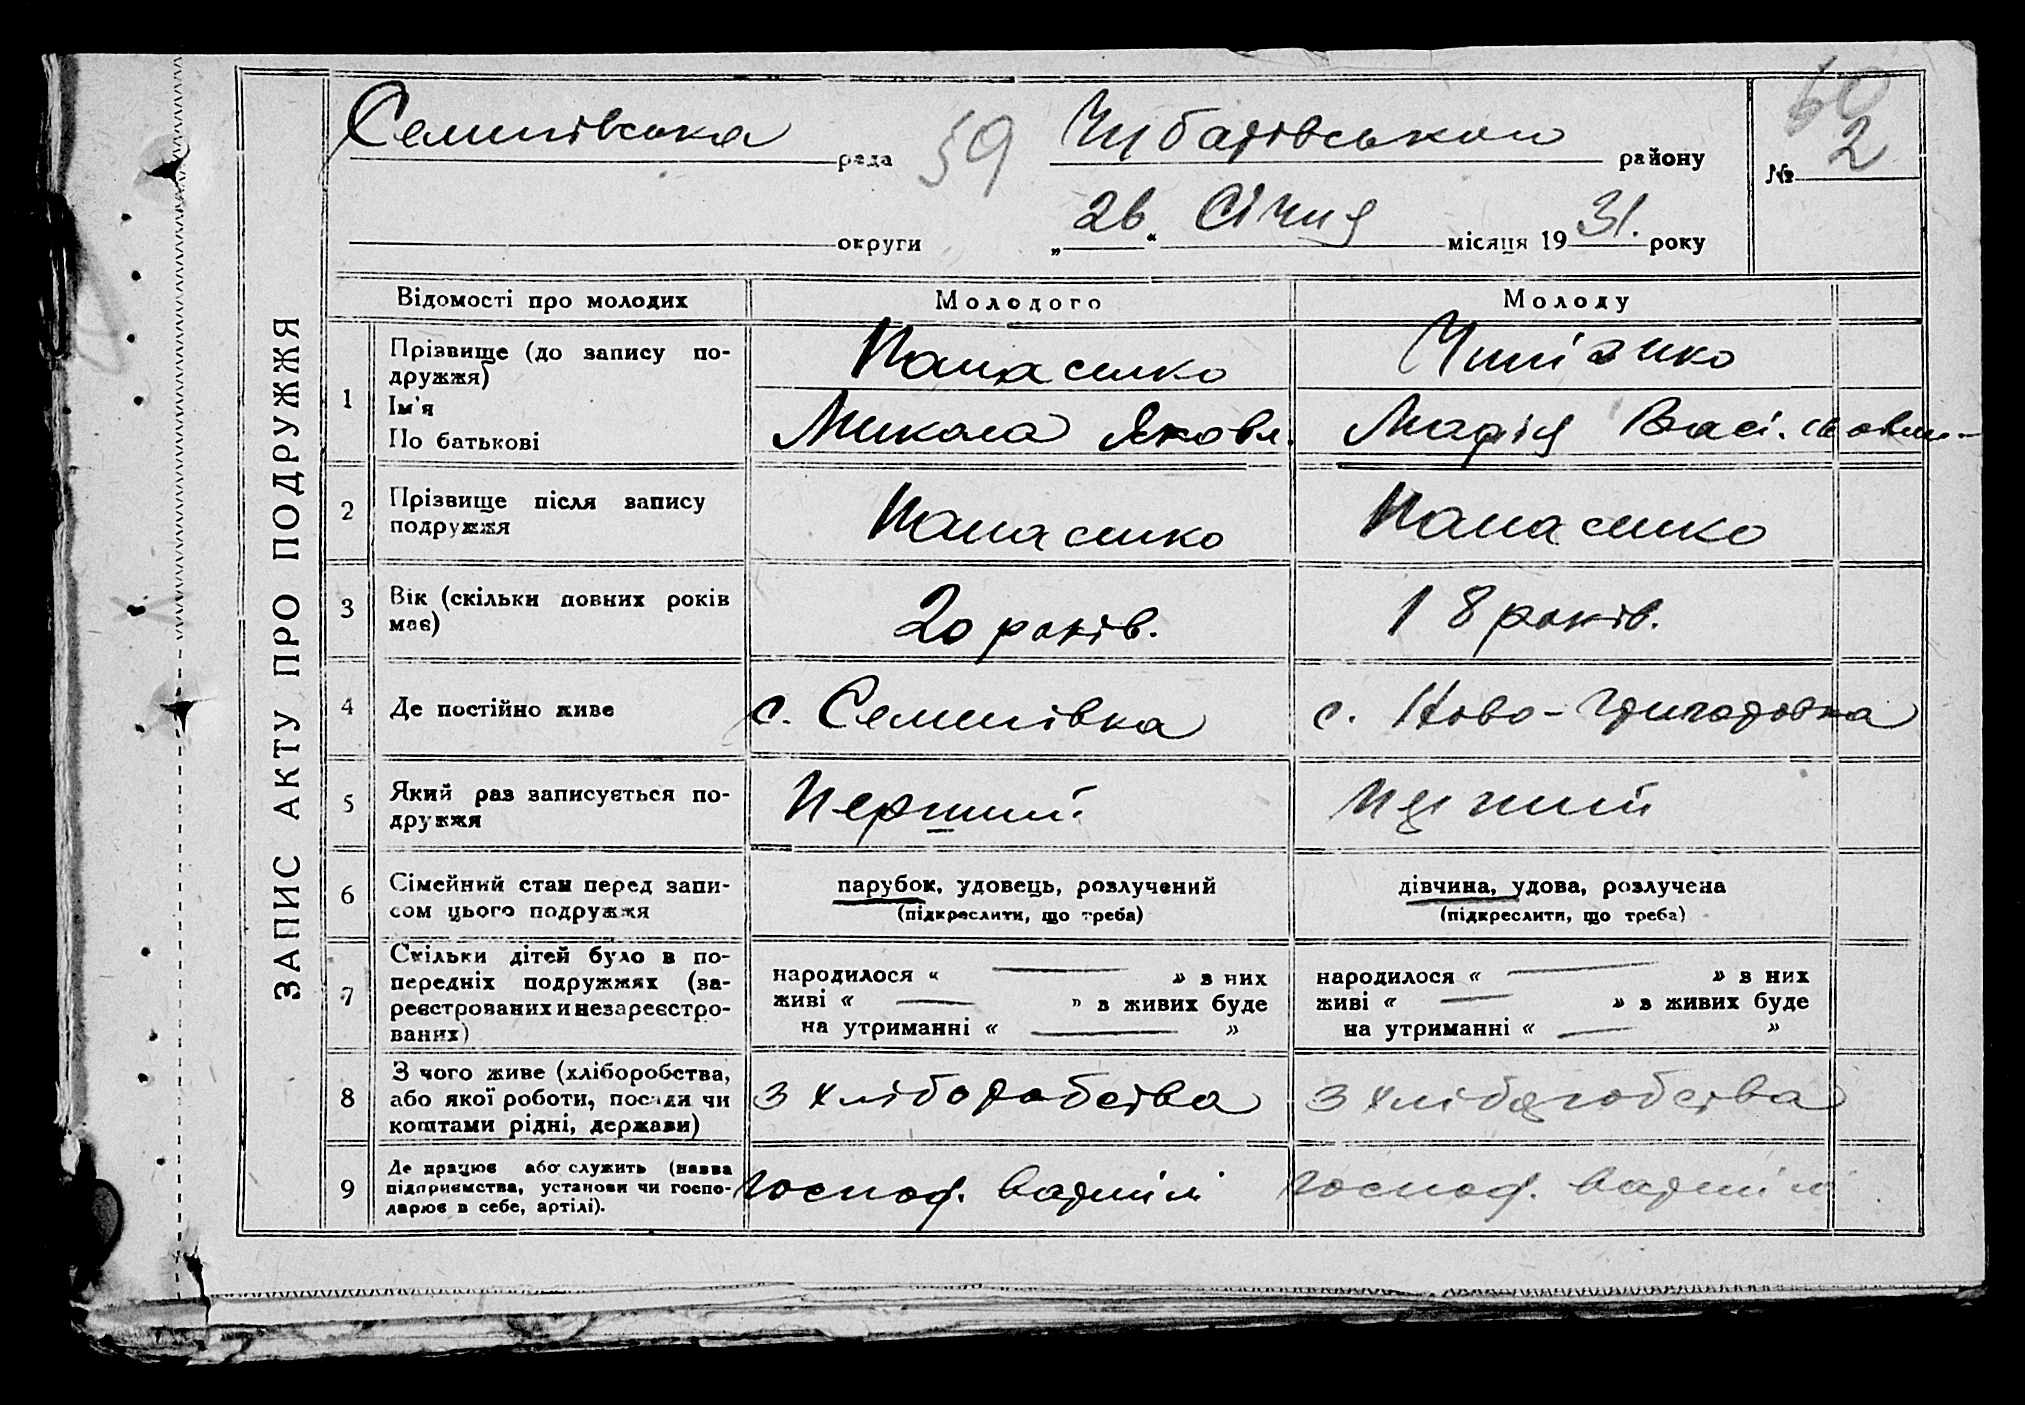 ЗАПИС АКТУ ПРО ПОДРУЖЖЯ
60
Семенівська рада 59 Чубарівського району № 2
округи „26“ Січня місяця 1931. року
Відомості про молодих Молодого Молоду
1 Прізвище (до запису подружжя) Панасенко
Ім'я
По батькові Микола Яковл. Марія
2 Прізвище після запису подружжя Панасенко Панасенко
3 Вік (скільки повних років має) 20 років. 18 років.
4 Де постійно живе с. Семенівка с. Ново-Григоровка
5 Який раз записується подружжя Перший
6 Сімейний стан перед записом цього подружжя парубок, удовець, розлучений дівчина, удова, розлучена
(підкреслити, що треба) (підкреслити, що треба)
7 Скільки дітей було в попередніх подружжях (зареєстрованих и незареєстрованих)
народилося « — » в них народилося « — » в них
живі « — » в живих буде живі « — » в живих буде
на утриманні « — » на утриманні « — »
8 З чого живе (хліборобства, або якої роботи, посади чи коштами рідні, держави) з хліборобства з хліборобства
9 Де працює або служить (назва підприємства, установи чи господарює в себе, артілі). господ. в артілі господ. в артілі